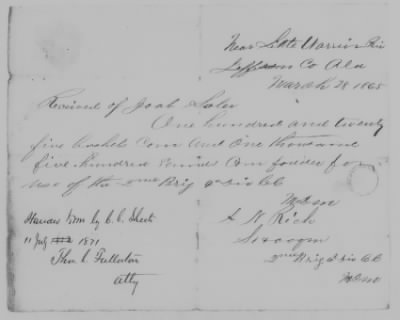 Near Little Warrior Riv
Jefferson Co Ala
March 28 1865
Received of Joab
One hundred and twenty
five bushels Corn and One thousand
five hundred Corn fodder for
use of the 2nd Brig 4 Div CC
M D M
A N Rich
2nd Brig 4 Div CC
M D M
by C. C. Sheets
11 July 1871
Thos. C. Fullerton
Atty